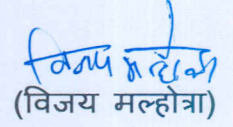 विजय मल्होत्रा
(विजय मल्होत्रा)